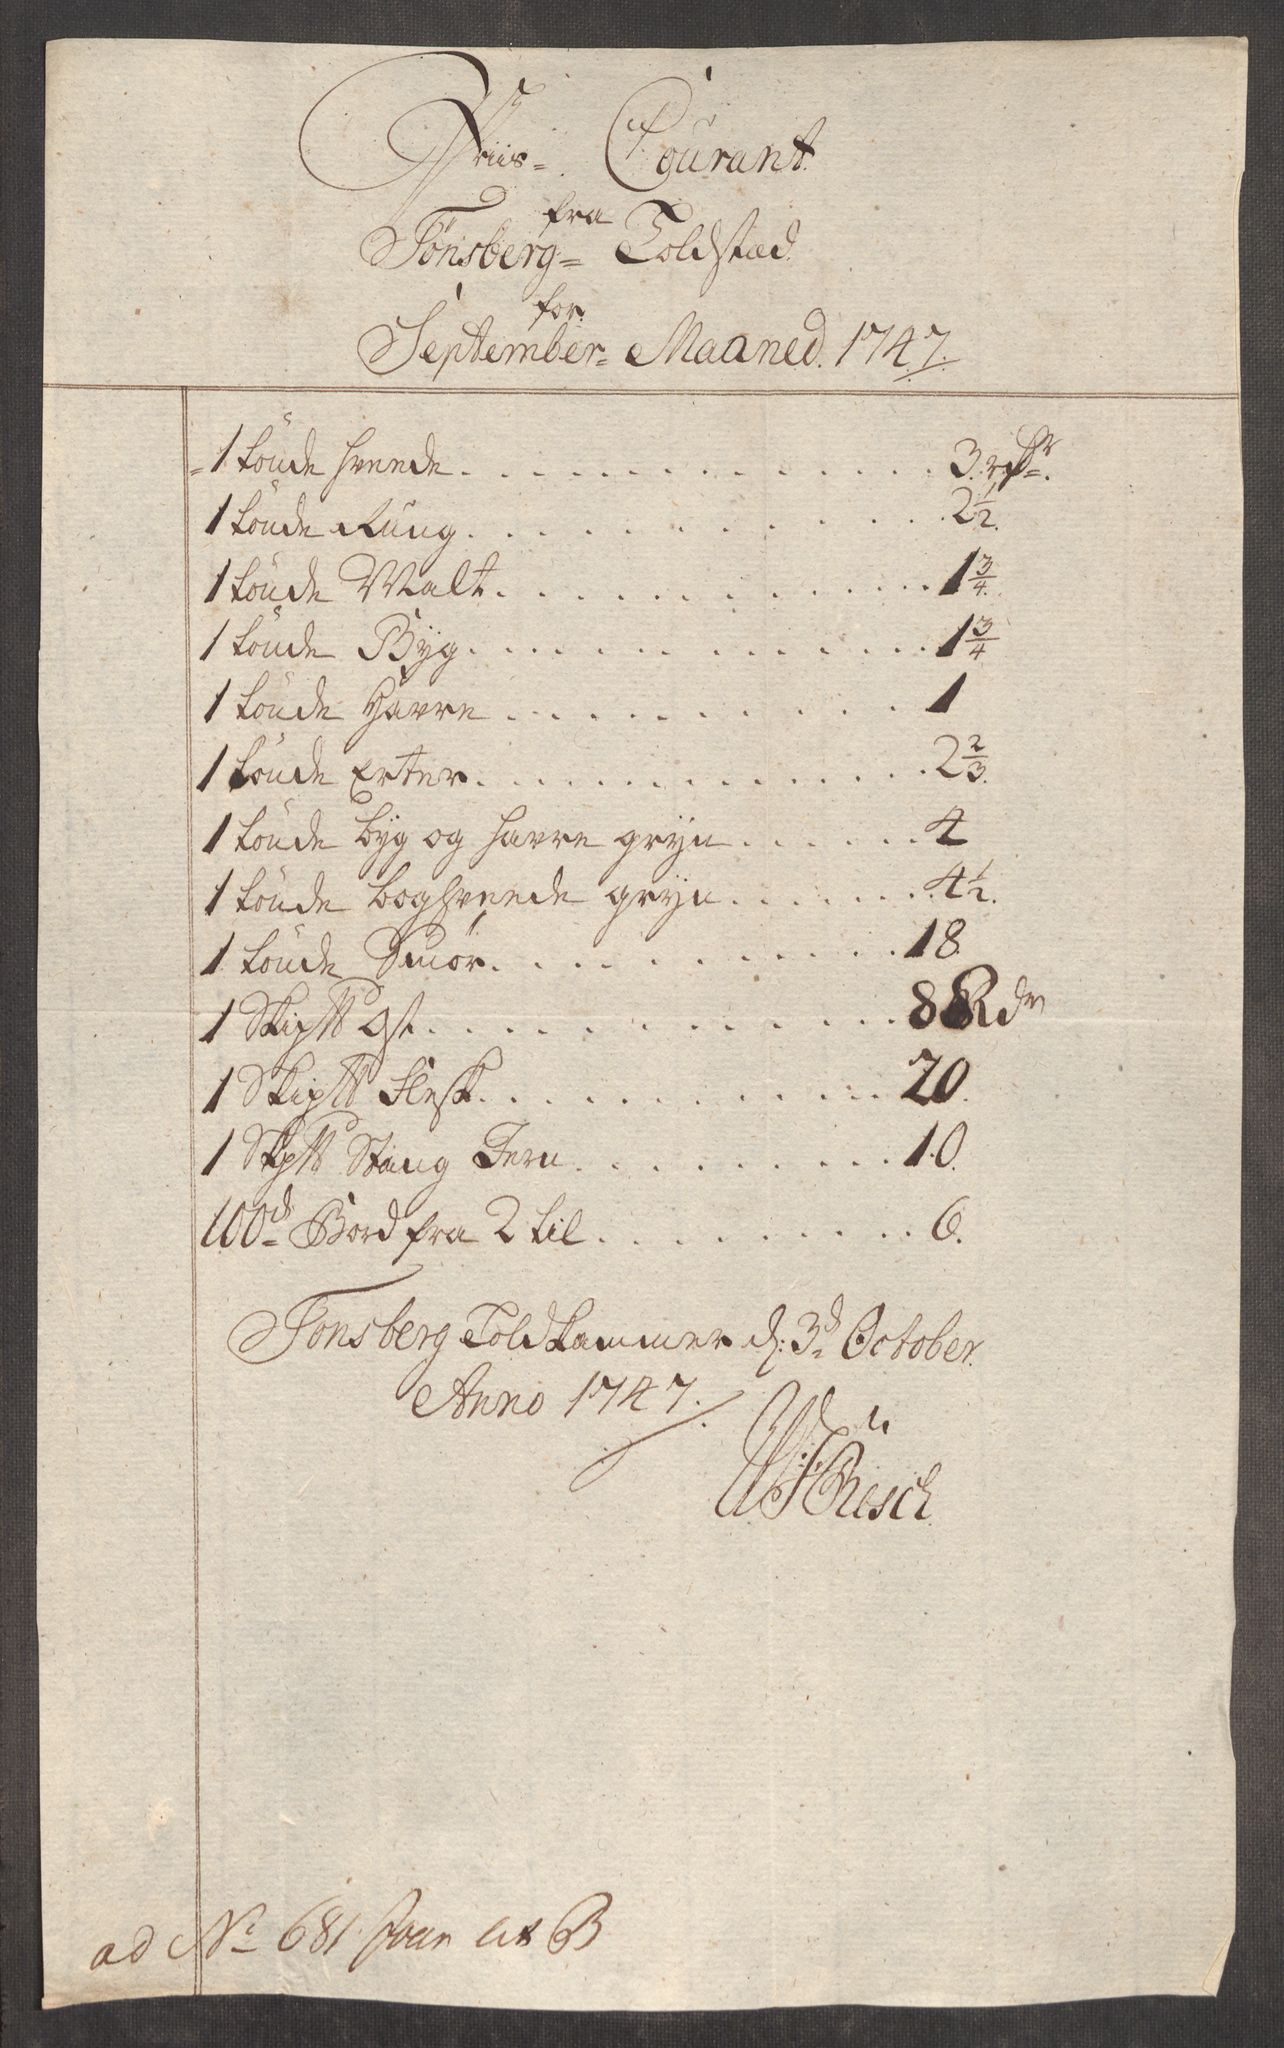 Priis= Courant
fra
Tönsberg= Toldstæd
for
September= Maaned. 1747.
1 tönde hveede. 3. rdr.
1 tönde Rüug. 2 1/2.
1 tönde Malt. 1 3/4.
1 tönde Byg. 1 3/4
1 tönde Havre. 1
1 tönde Erter. 2 2/3.
1 tönde byg og havre gryn. 4
1 tönde boghveede gryn. 4 1/2.
1 tönde Smör. 18.
1 Skip℔ Ost. 8 Rdr
1 Skip℔ Flesk. 20.
1 Skp℔ Stang Jern. 10.
100d Bord fra 2 til. 6.
Tonsberg Toldkammer d: 3d October.
Anno 1747.
Rüsch
ad No 681 lit B